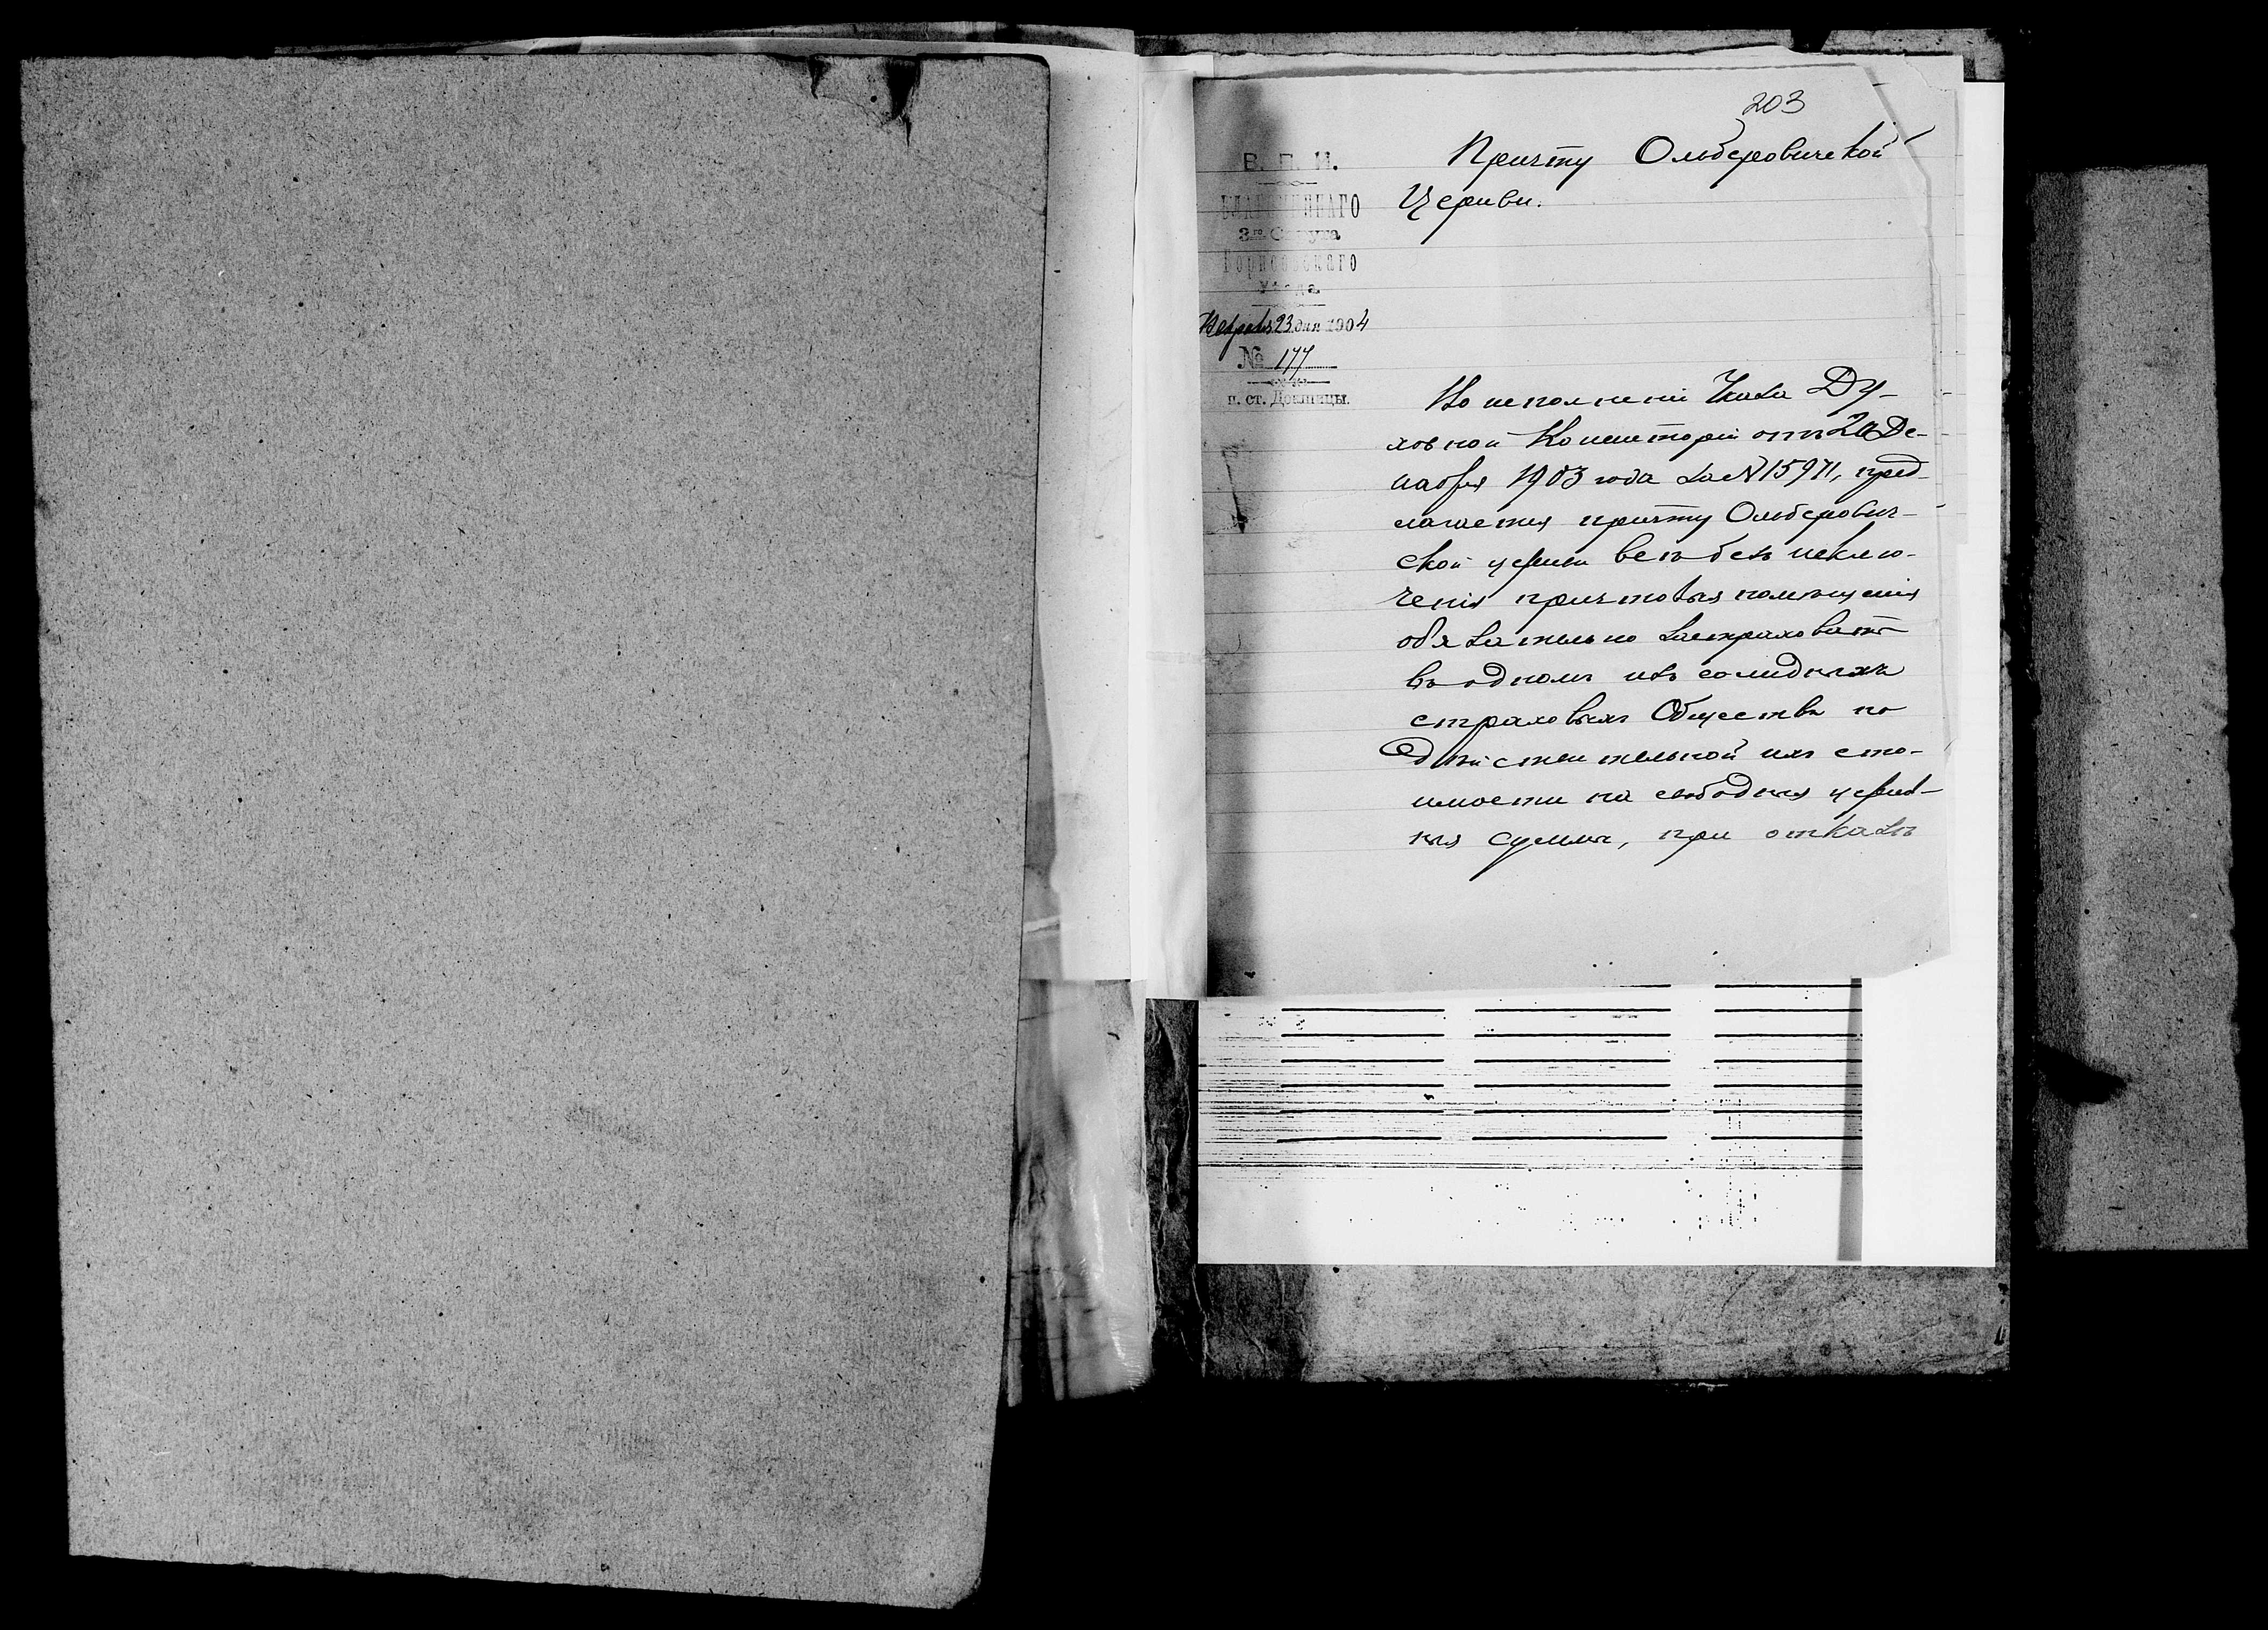 203
В. П. И.
БЛАГОЧИННАГО
3го Округа
Борисовскаго
Уѣзда.
Февраля 23 дня 1904
№ 177
п. ст. Докшицы.
Причту Ольберовичской
Церкви.
Во исполненіи Указа Ду-
ховной Консисторіи отъ 20 Де-
кабря 1903 года за № 15971, пред-
лагается причту Ольберович-
ской церкви всѣ безъ исклю-
ченія причтовыя помѣщенія
обязательно застраховать
въ одномъ изъ солидныхъ
страховыхъ Обществъ по
дѣйствительной ихъ сто-
имости на свободныя церков-
ныя суммы, при отказѣ